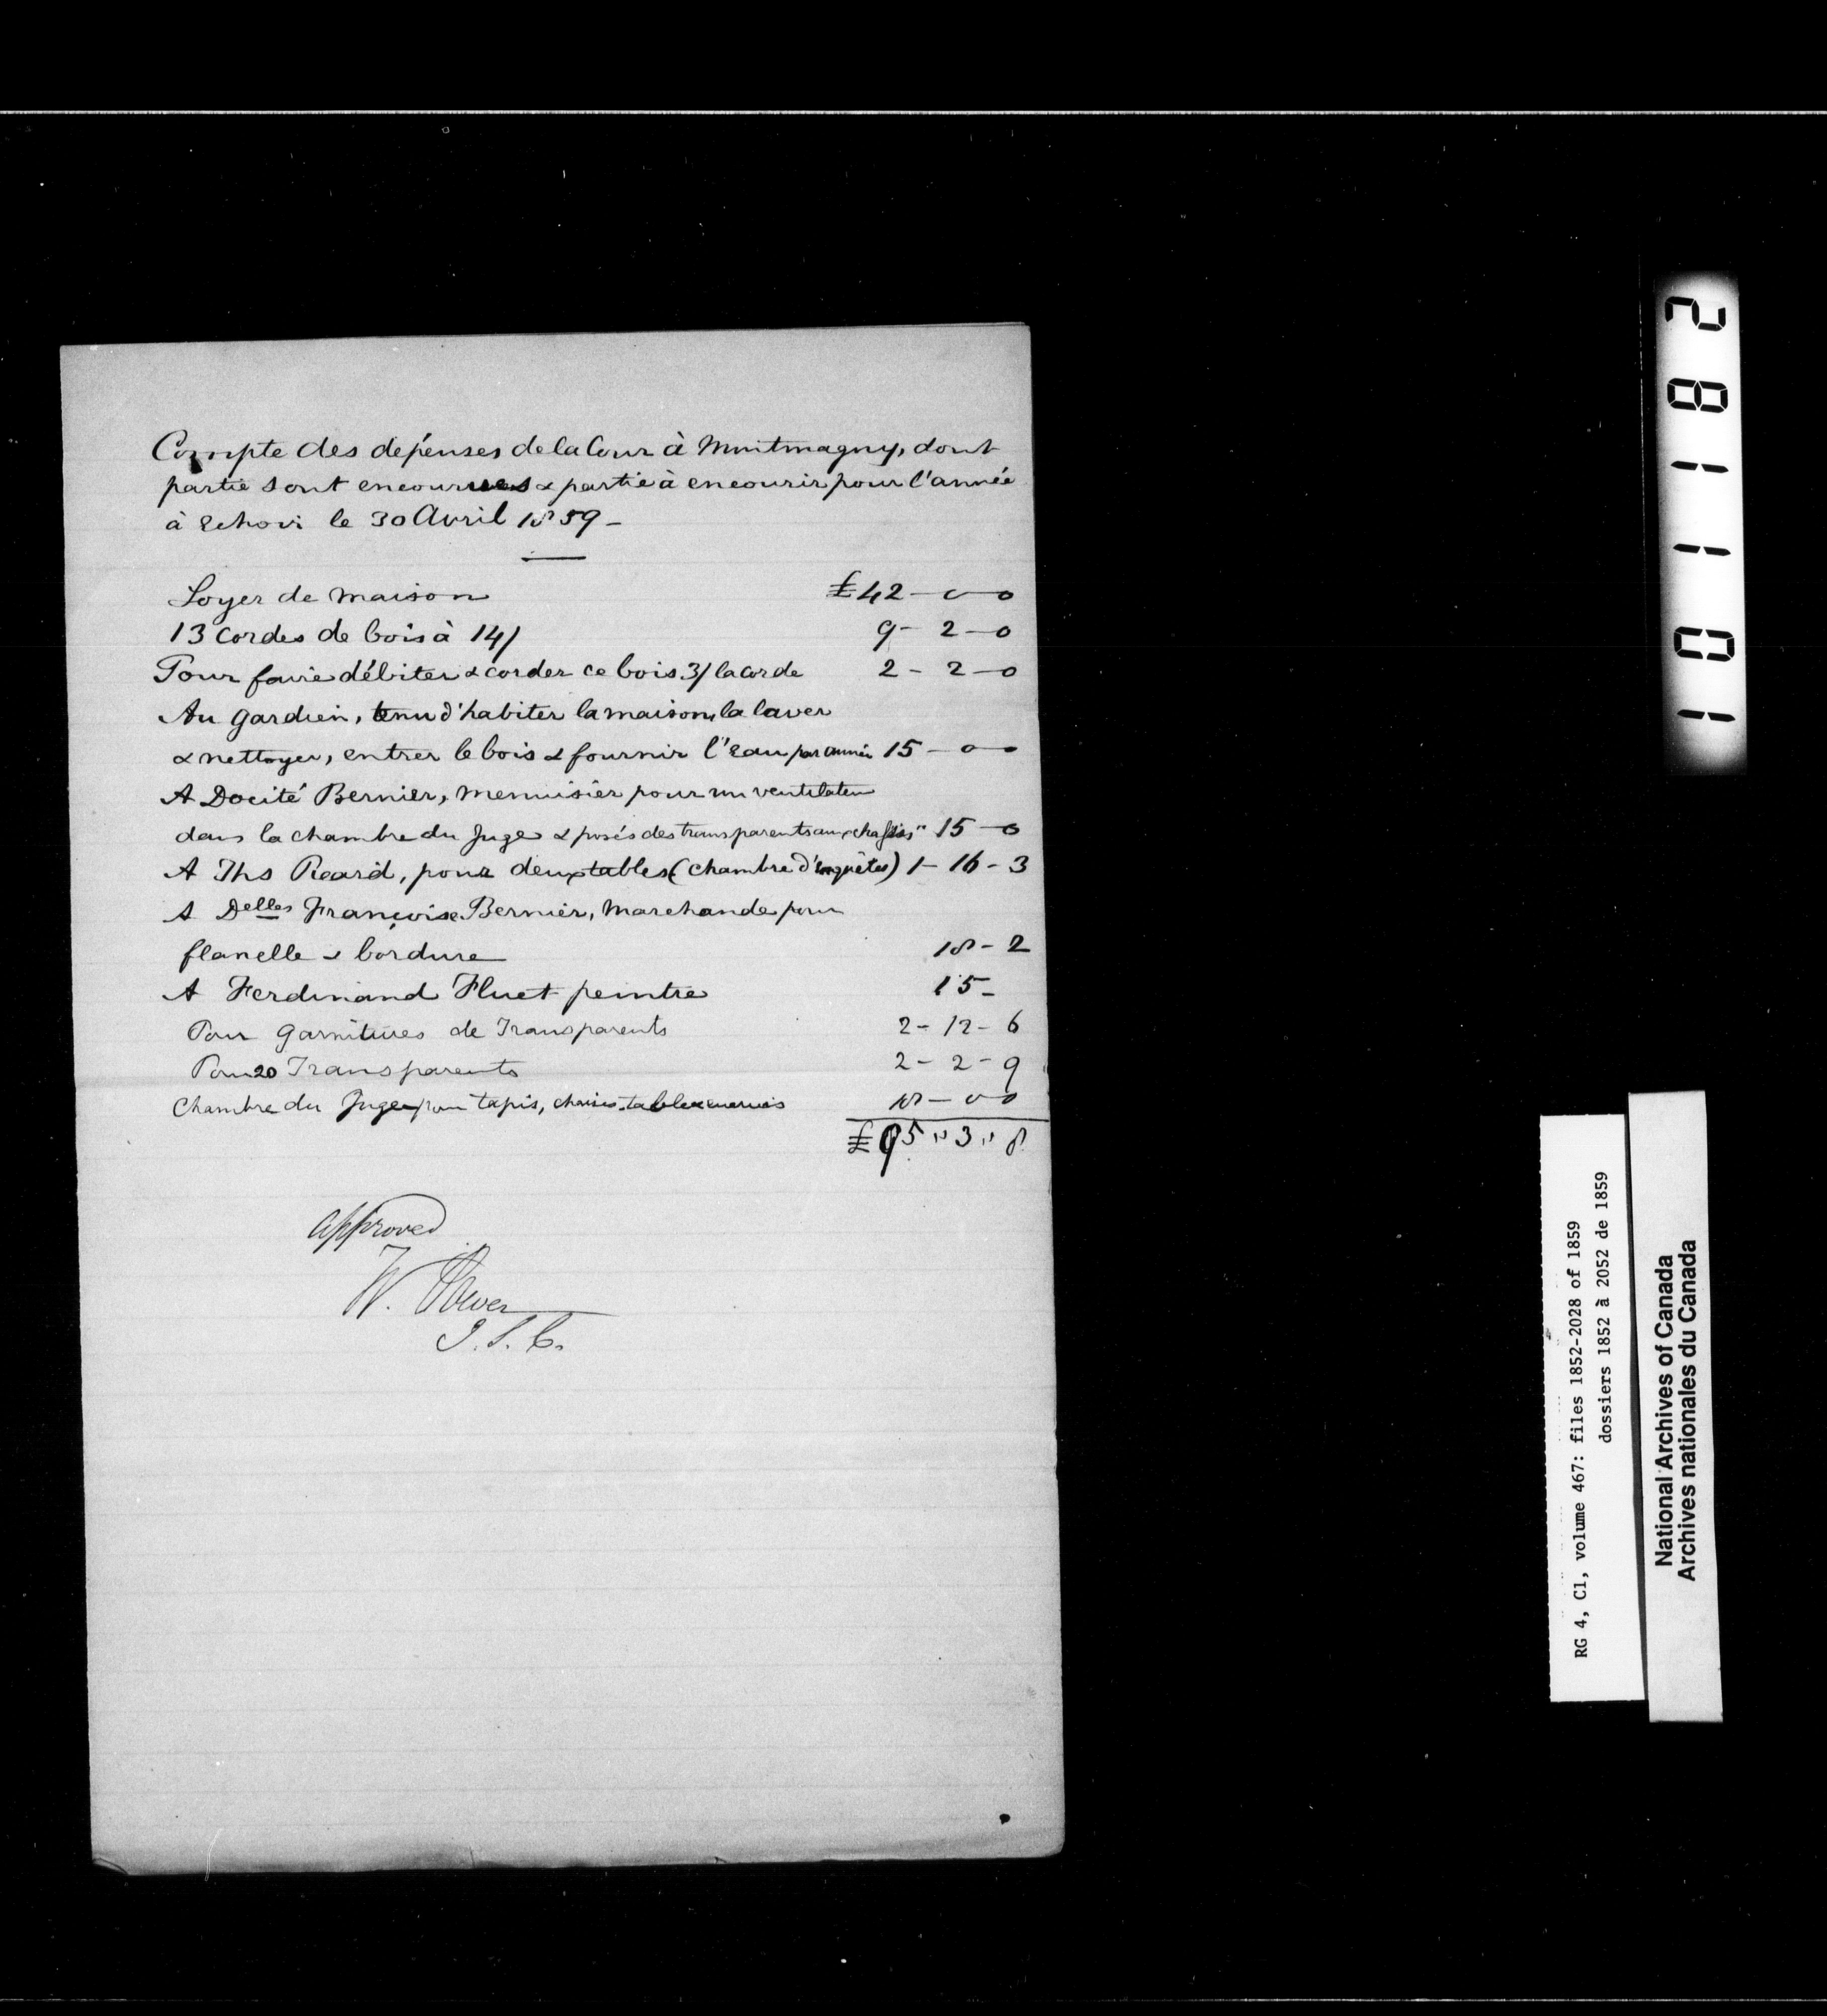 Compte des depénses de la Cour à Montmagny, dont
partie sont encourues & partie à encourir pour l'année
à echoir le 30 Avril 1859 -
Loyer de maison £42-0-0
13 Cordes de bois à 14/ 9-2-0
Pour faire débiter & corder ce bois 3/ la corde 2-2-0
Au gardien, tenu d'habiter la maison, la laver
& nettoyer, entrer le bois & fournir l'eau par année 15-0-0
A Docité Bernier, menuisier pour un ventilateur
dans la chambre du Juge & posés des transparents aux chassis " 15-0
A Ths Picard, pour deux tables (chambre d'enquêtes) 1-16-3
A Delles Françoise Bernier, Marchande pour
flanelle & bordure 18-2
A Ferdinand Fluet peintre 15-
Pour garnitures de Transparents 2-12-6
Pour 20 Transparents 2-2-9
Chambre du Juge pour tapis, chaises, table 18-0-0
£95"3"8
approved
W. Power
J.S.C.
281101
RG 4, C1, volume 467: files 1852-2028 of 1859
dossiers 1852 à 2052 de 1859
National Archives of Canada
Archives nationales du Canada